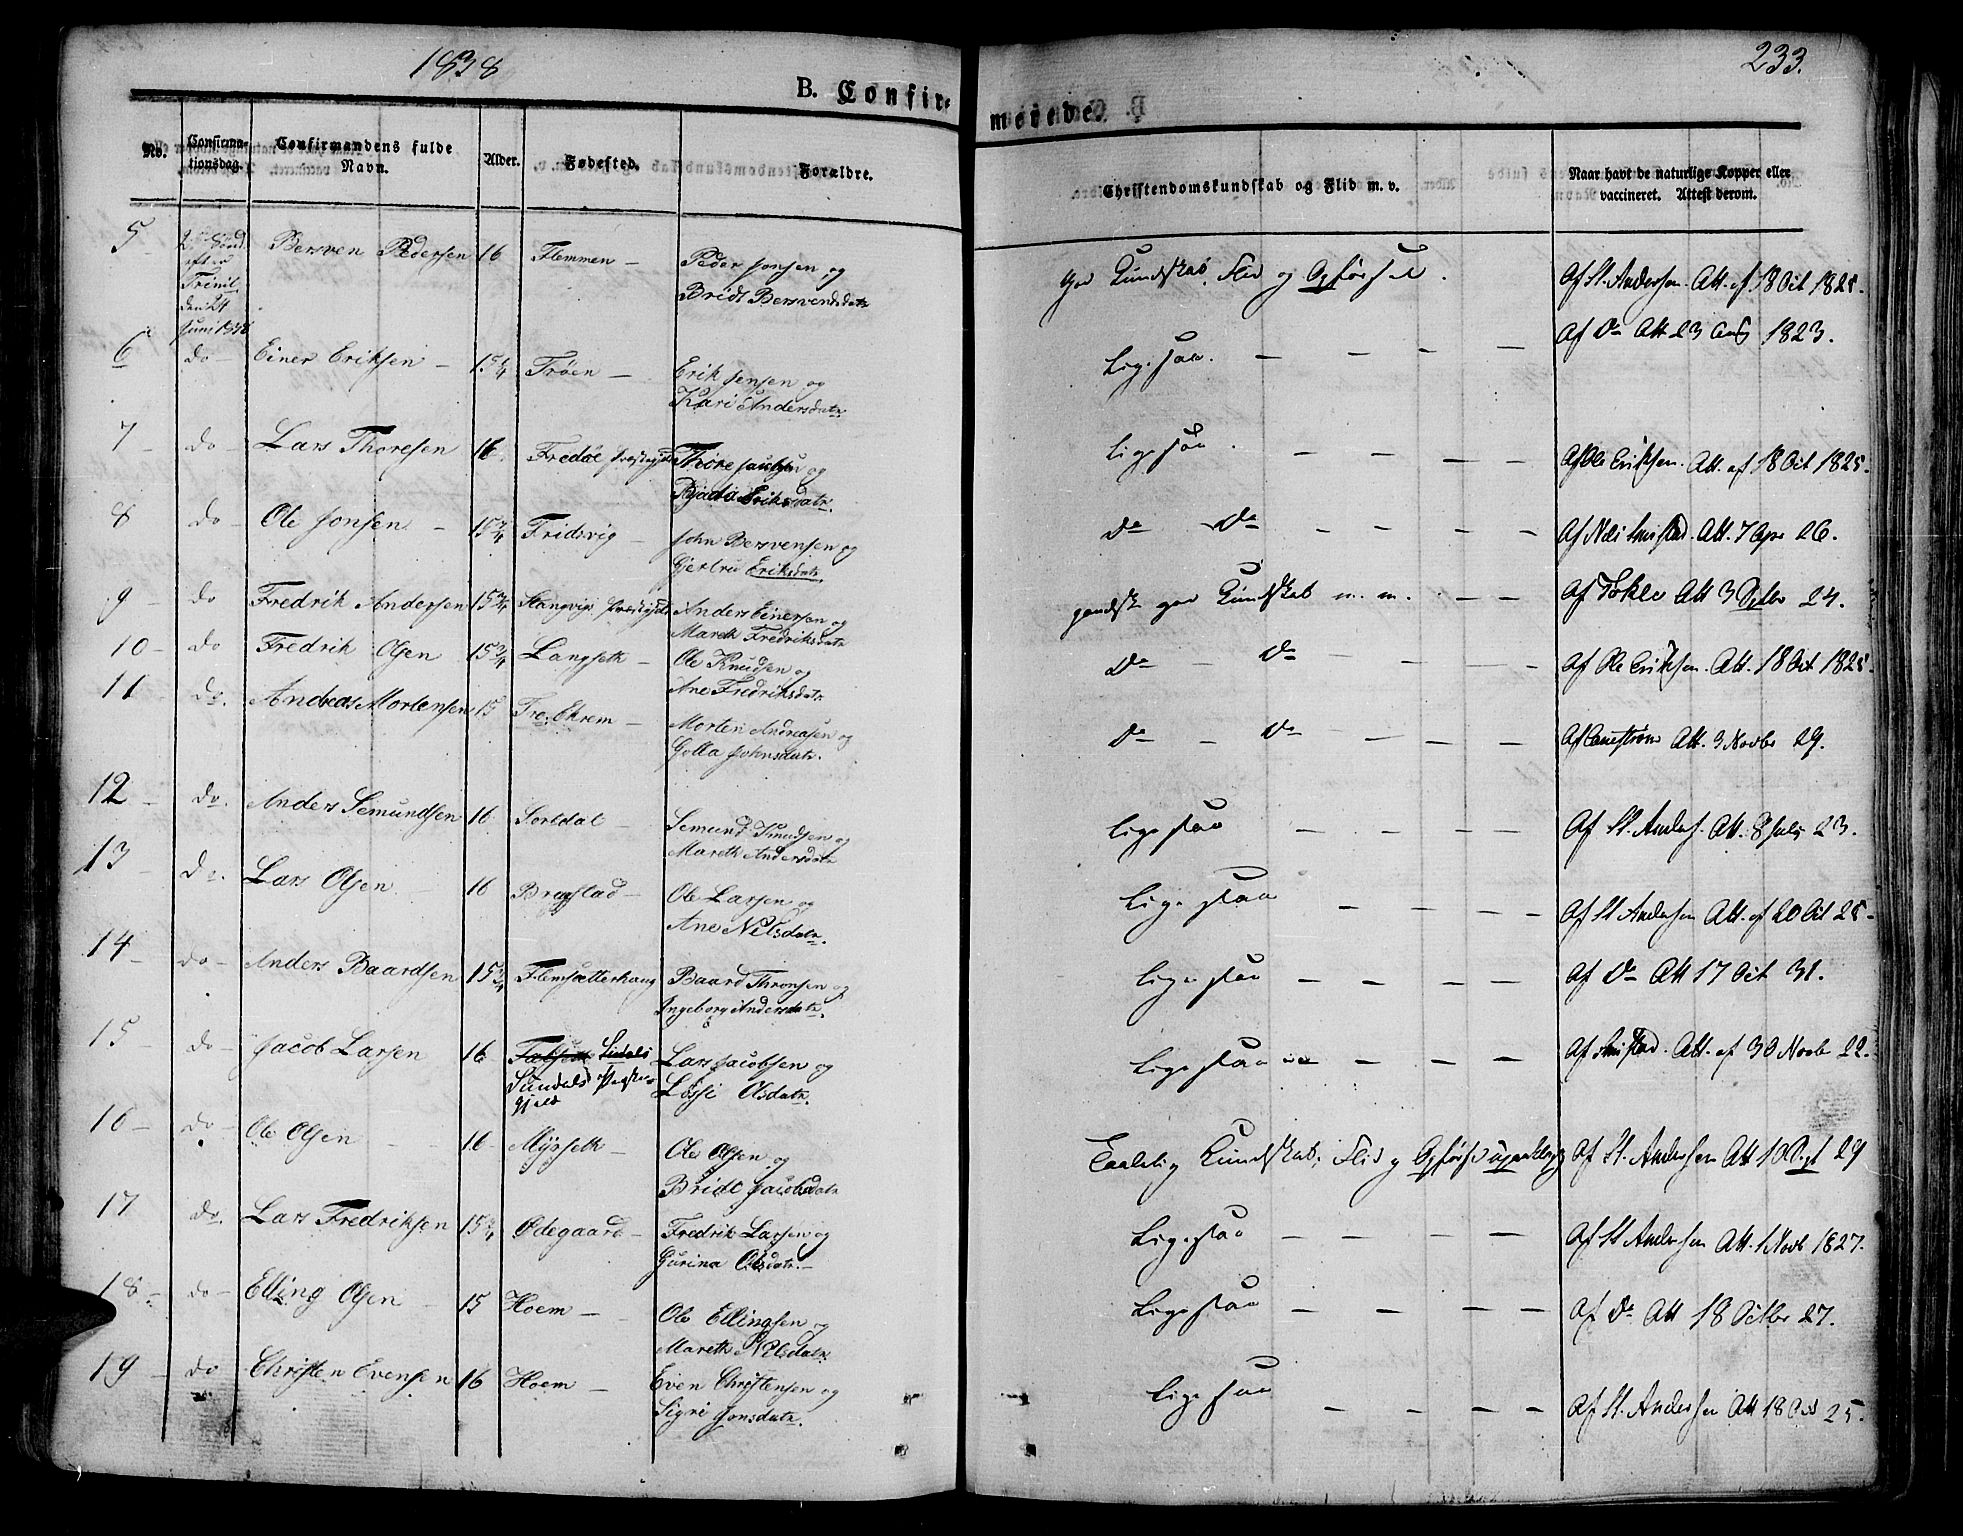 1838
233.
B. Confir-
merede.
No.
Confirma-
tionsdag.
Confirmandens fulde
Navn.
Alder.
Fødested.
Forældre.
Christendomskundskab og Flid m. v.
Naar havt de naturlige Kopper eller
vaccineret. Attest derom.
5 2. Sønd. efter Trinit. den 24 Juni 1838 Bersven Pedersen 16 Flemmen – Peder Jonsen og
Bridt Bersvensdatr
god Kundskab, Flid og Opførsel. Af St. Andersen. Att. af 18 Oct 1825.
6 do – Einer Eriksen – 15 3/4 Trøen – Erik Jensen og
Kari Andersdatr
Ligesaa. – – – – Af Do Att 23 Aug 1823.
7 – do – Lars Thoresen 16 Fredøe Thore og
Eriksdatr.
Ligesaa. – – – – Af Ole Eriksen. Att. af 18 Oct 1825.
8 do – Ole Jonsen – 15 3/4 Fridsvig – John Bersvensen og
Gjertru Eriksdatr.
Do Do – – – – Att. 7 Apr 26.
9 – do Fredrik Andersen 15 3/4 Stangvigs Præstegjeld Anders Einersen og
Mareth Fredriksdatr
god Kundskab m. m. – – Af Att 3 24.
10 – do Fredrik Olsen 15 3/4 Langseth – Ole Knudsen og
Ane Fredriksdatr
Do – Do – – – – Af Ole Eriksen. Att. 18 Oct 1825
11 – do. Andreas Mortensen 15 Morten Andreasen og
Golla Johnsdatr.
Do – Do – – – Att. 3 Novbr 29.
12 – do. Anders Semundsen 16 Sorldal – Semund Knudsen og
Mareth Andersdatr
Ligesaa – – – – Af St. Anders. Att. 8 Juli 23.
13 – do. Lars Olsen – 16 Bragstad – Ole Larsen og
Ane Nilsdatr.
Ligesaa – – – – Af St Andersen Att. af 20 Oct 25.
14 – do – Anders Baardsen 15 3/4 Flemsætterhaug Baard Thronsen og
Ingeborg Andersdatr.
Ligesaa – – – – Af Do Att 17 Oct 31.
15 – do – Jacob Larsen 16
Sundals Præste-
gjeld
Lars Jacobsen og
Olsdatr.
Ligesaa Att. af 30 Novb 22.
16 – do – Ole Olsen – – 16 Myrseth – Ole Olsen og
Bridt Jacobsdatr
Taalelig Kundskab, Flid og Opførsel Af St. Andersen Att 10 29
17 do. Lars Fredriksen 15 3/4 Ødegaard – Fredrik Larsen og
Gurina Olsdatr. –
Ligesaa – – – – Af St Andersen Att. 1 Novb 1827.
18 – do – Elling Olsen – 15 Hoem – Ole Ellingsen og
Mareth Nilsdatr
Ligesaa – – – – Af Do Att 18 Octbr 27.
19 – do Christen Evensen 16 Hoem – Even Christensen og
Sigri Jonsdatr.
Ligesaa – – – – Af St. Andersen Att 18 Oct 25.